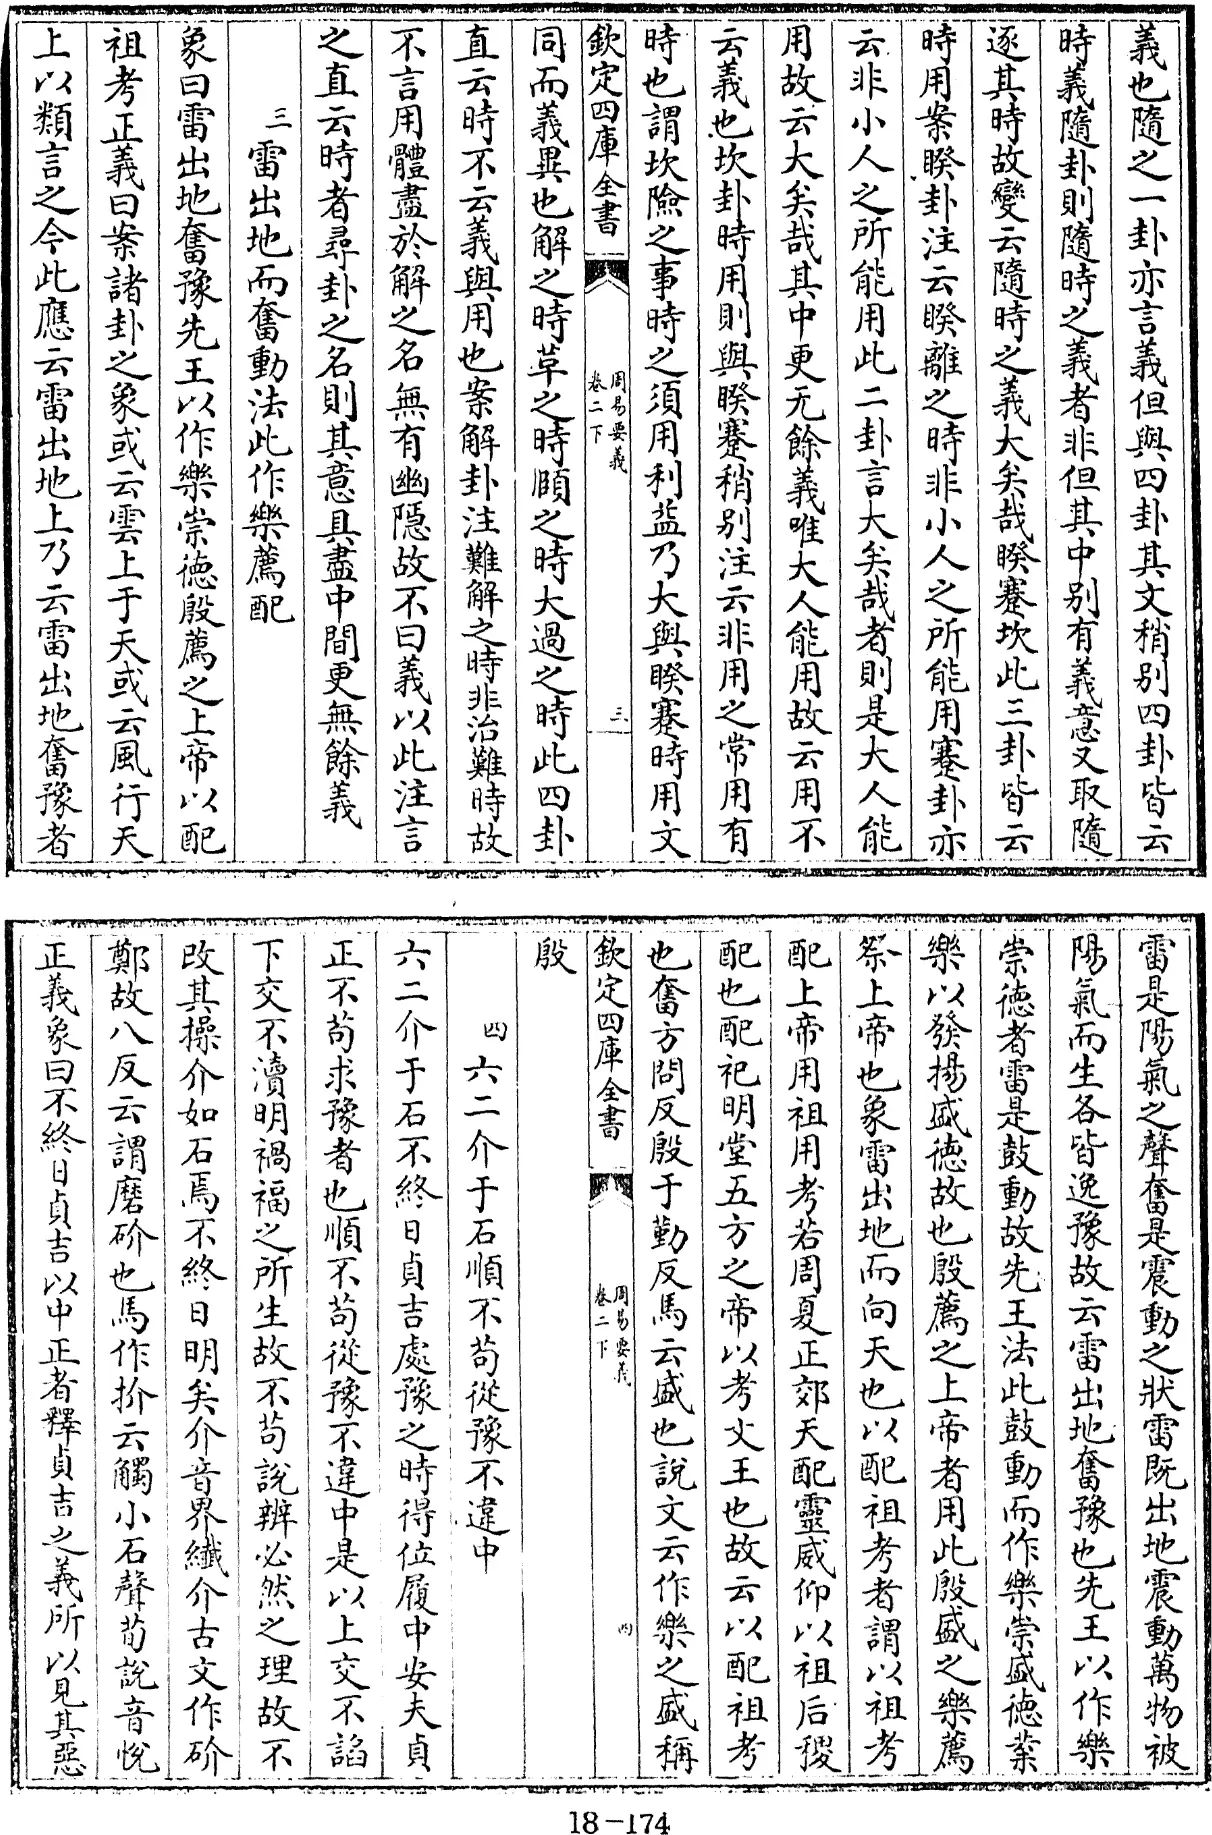 義也隨之一卦亦言義但與四卦其文稍别四卦皆云
時義隨卦則隨時之義者非但其中别有義意又取隨
逐其時故變云隨時之義大矣哉睽蹇坎此三卦皆云
時用案睽卦注云睽離之時非小人之所能用蹇卦亦
云非小人之所能用此二卦言大矣哉者則是大人能
用故云大矣哉其中更无餘義唯大人能用故云用不
云義也坎卦時用則與睽蹇稍别注云非用之常用有
時也謂坎險之事時之須用利益乃大與睽蹇時用文
欽定四庫全書
周易要義
卷二下
三
同而義異也解之時革之時頤之時大過之時此四卦
直云時不云義與用也案解卦注難解之時非治難時故
不言用體盡於解之名無有幽隱故不曰義以此注言
之直云時者尋卦之名則其意具盡中間更無餘義
三雷出地而奮動法此作樂薦配
象曰雷出地奮豫先王以作樂崇徳殷薦之上帝以配
祖考正義曰案諸卦之象或云雲上于天或云風行天
上以類言之今此應云雷出地上乃云雷出地奮豫者
雷是陽氣之聲奮是震動之狀雷既出地震動萬物被
陽氣而生各皆逸豫故云雷出地奮豫也先王以作樂
崇徳者雷是鼓動故先王法此鼓動而作樂崇盛徳業
樂以發揚盛徳故也殷薦之上帝者用此殷盛之樂薦
祭上帝也象雷出地而向天也以配祖考者謂以祖考
配上帝用祖用考若周夏正郊天配靈威仰以祖后稷
配也配祀明堂五方之帝以考文王也故云以配祖考
也奮方問反殷于勤反馬云盛也說文云作樂之盛稱
欽定四庫全書
周易要義
卷二下
四
殷
四六二介于石順不苟從豫不違中
六二介于石不終日貞吉處豫之時得位履中安夫貞
正不苟求豫者也順不苟從豫不違中是以上交不諂
下交不瀆明禍福之所生故不苟說辨必然之理故不
改其操介如石焉不終日明矣介音界纖介古文作砎
鄭故八反云謂磨砎也馬作扴云觸小石聲茍說音悅
正義象曰不終日貞吉以中正者釋貞吉之義所以見其惡
18-174